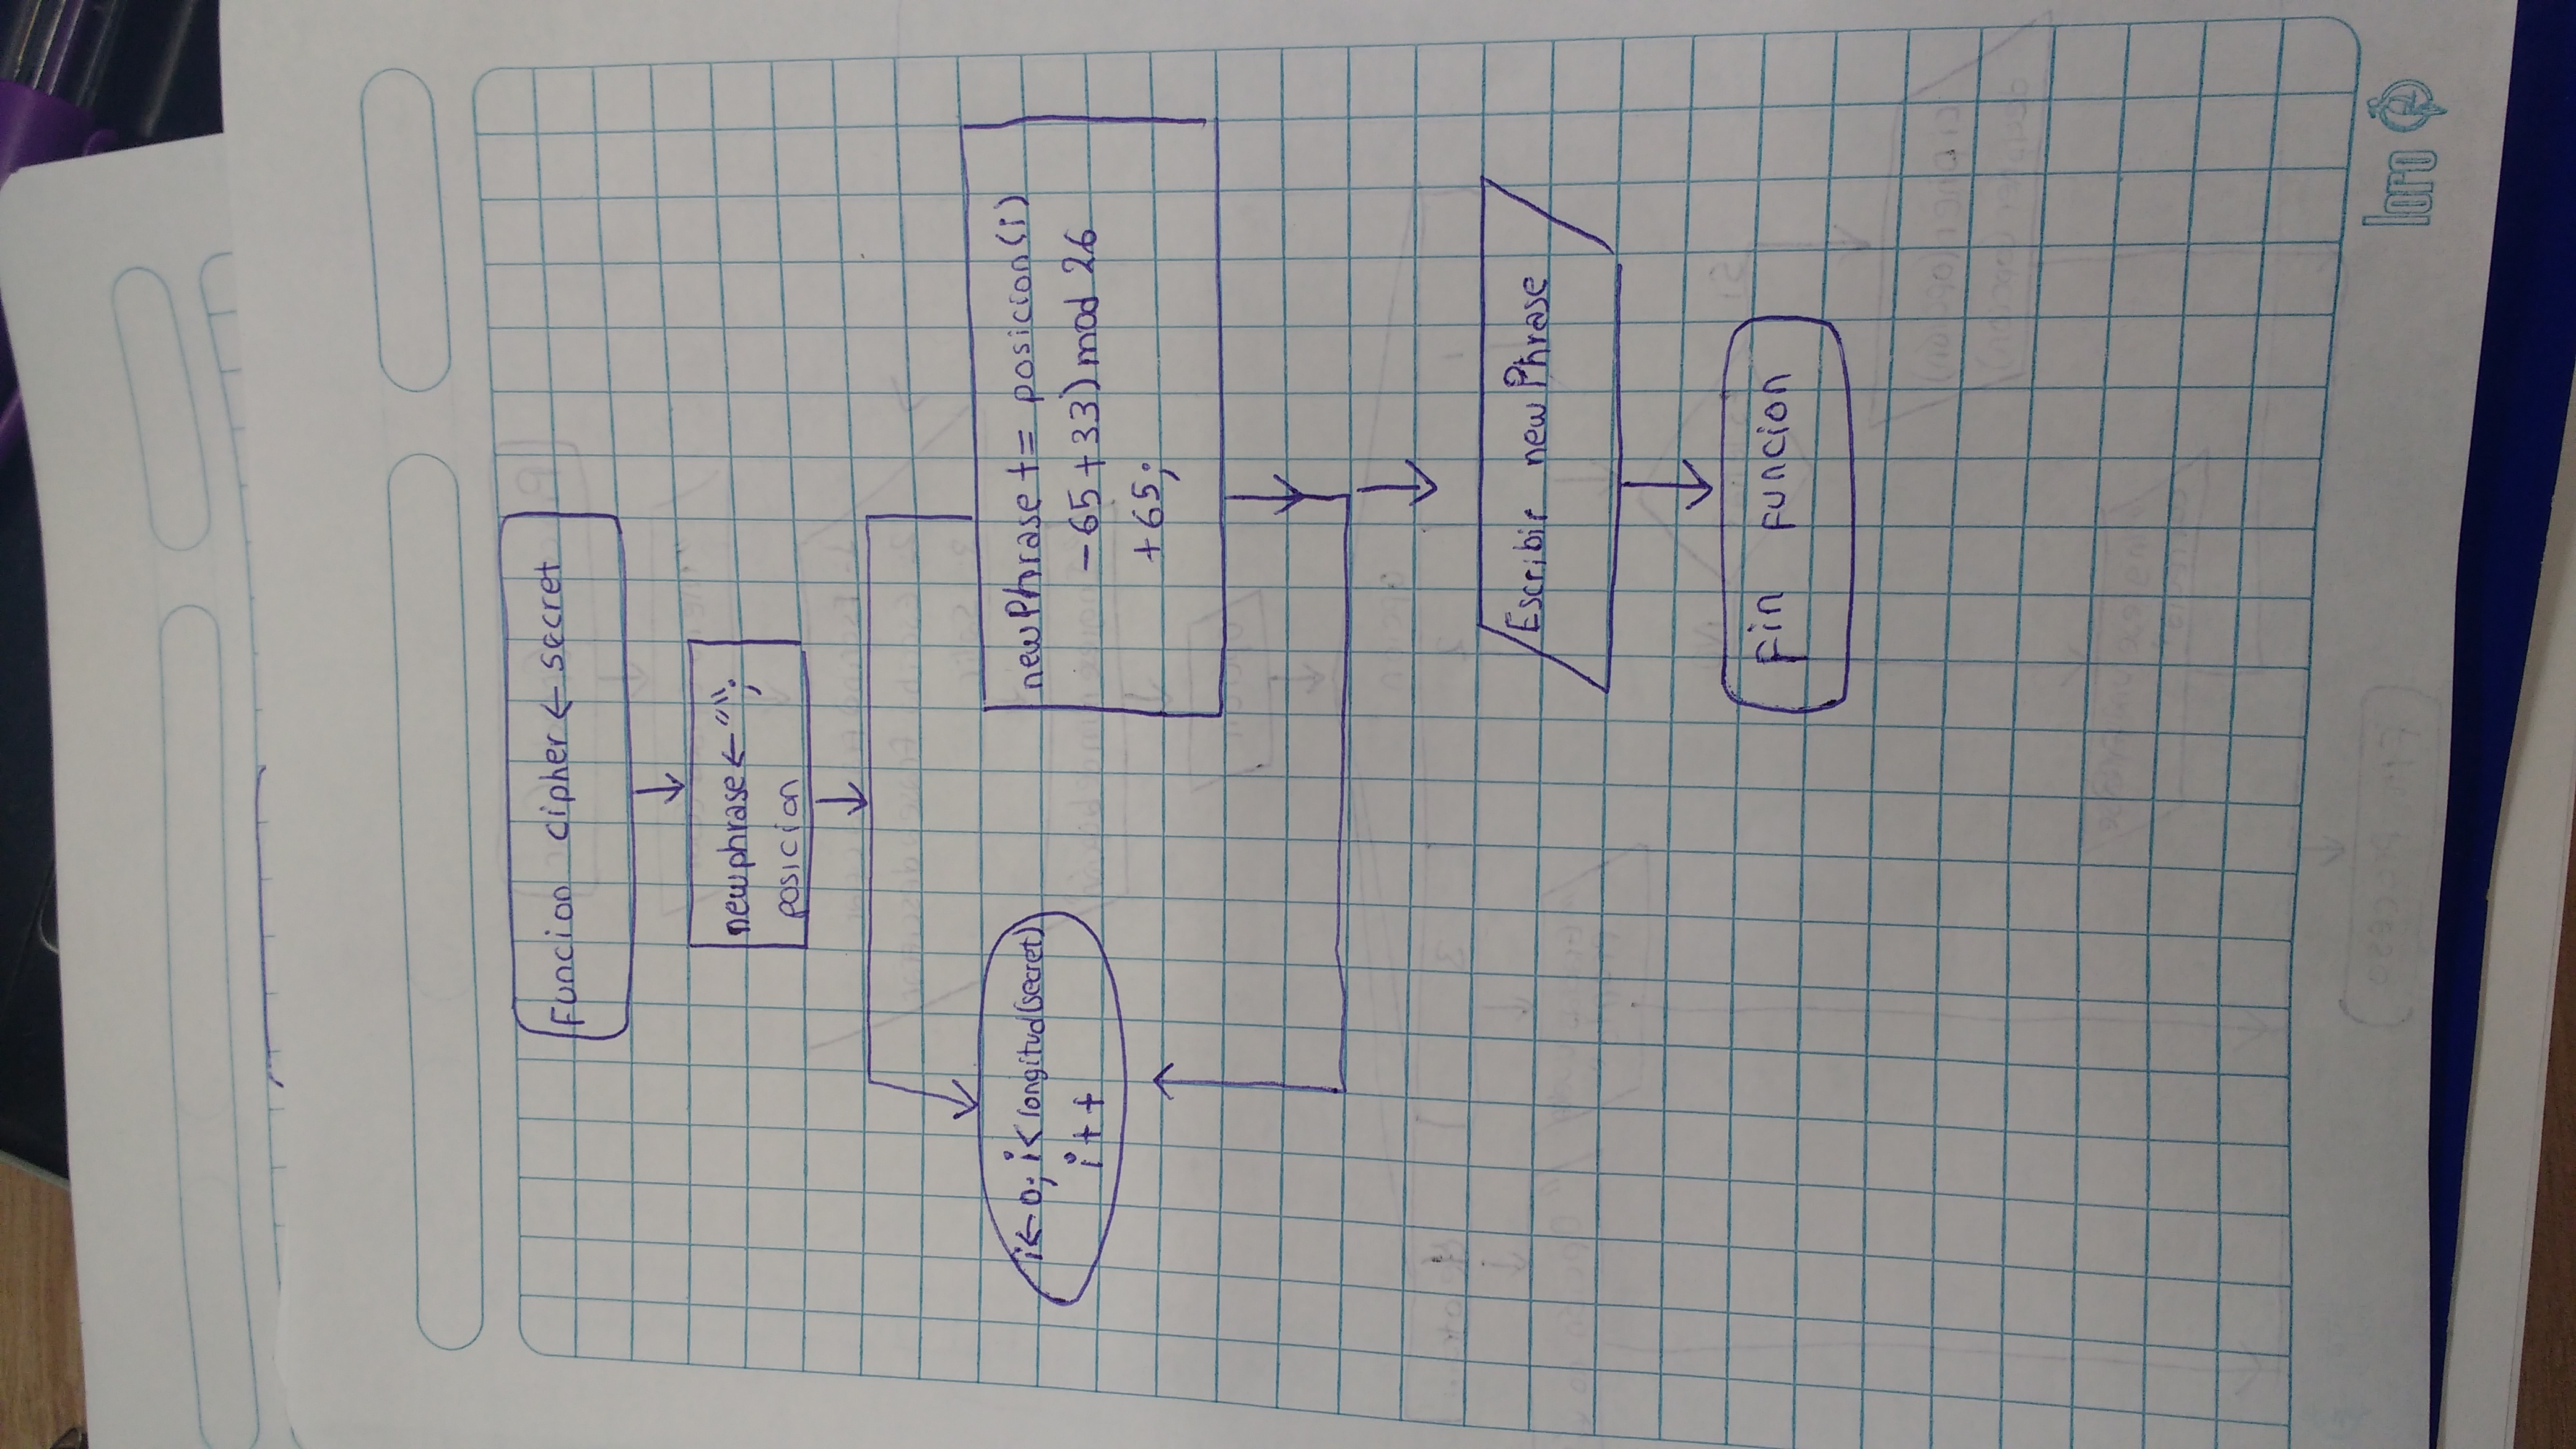 Funcion cipher ← secret
newphrase ← "";
posicion
i ← 0; i < longitud(secret)
i++
newPhrase += posicion(i)
-65+33) mod 26
+65;
Escribir new Phrase
Fin Funcion
loro